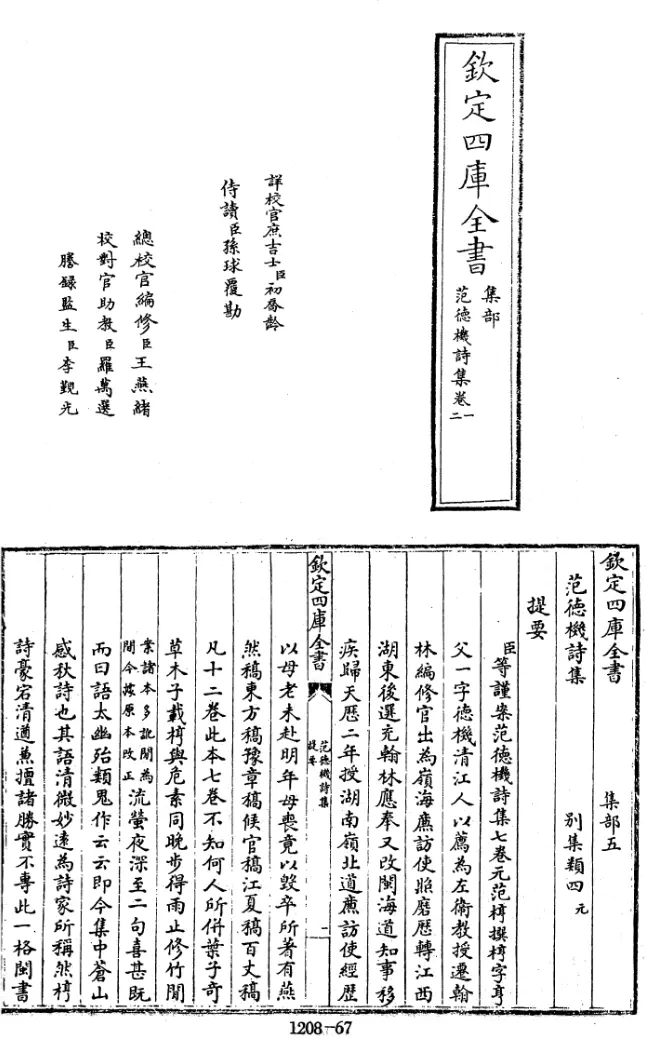 欽定四庫全書
集部
范德機詩集卷一
二
詳校官庶吉士臣初喬齡
侍讀臣孫球覆勘
總校官編修臣王燕緒
校對官助教臣羅萬選
謄錄監生臣李覲光
欽定四庫全書 集部五
范德機詩集 別集類四元
提要
臣等謹案范德機詩集七卷元范梈撰梈字亨
父一字德機清江人以薦為左衛教授遷翰
林編修官出為嶺海廉訪使照磨歷轉江西
湖東後選充翰林應奉又改閩海道知事移
疾歸天厯二年授湖南嶺北道廉訪使經歷
欽定四庫全書
范德機詩集
提要
一
以母老未赴明年母喪竟以毀卒所著有燕
然稿東方稿豫章稿候官稿江夏稿百丈稿
凡十二卷此本七卷不知何人所併葉子奇
草木子載梈與危素同晚步得雨止修竹間
案諸本多訛聞為
間今據原本改正
流螢夜深至二句喜甚既
而曰語太幽殆類鬼作云云即今集中蒼山
感秋詩也其語清微妙遠為詩家所稱然梈
詩豪宕清遒兼擅諸勝實不專此一格閩書
1208-67